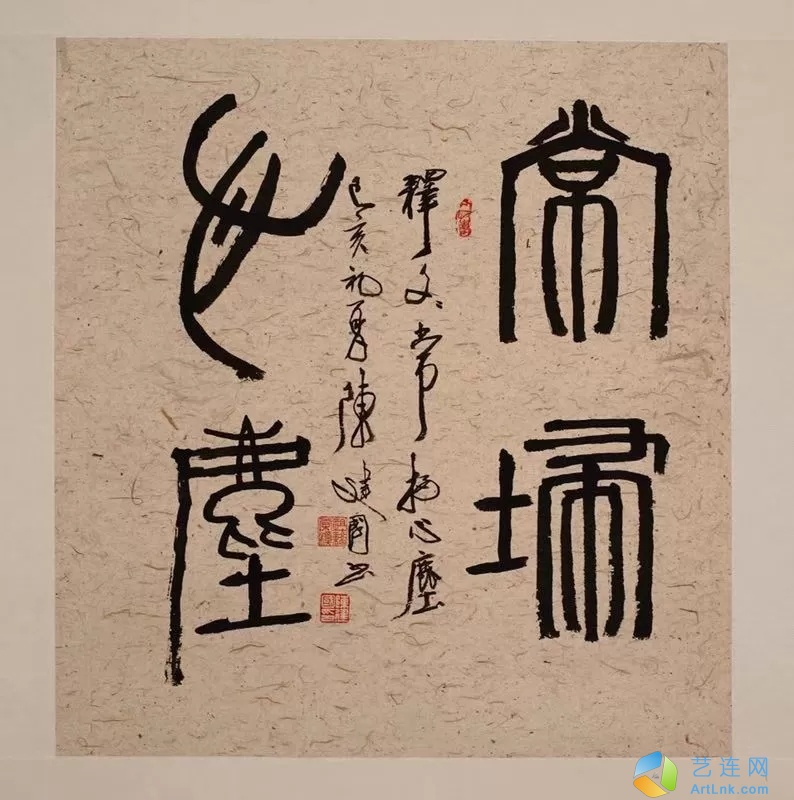 常埽
釋文常掃心塵
己亥初夏陳建國書
心塵
艺连网
ArtLnk.com